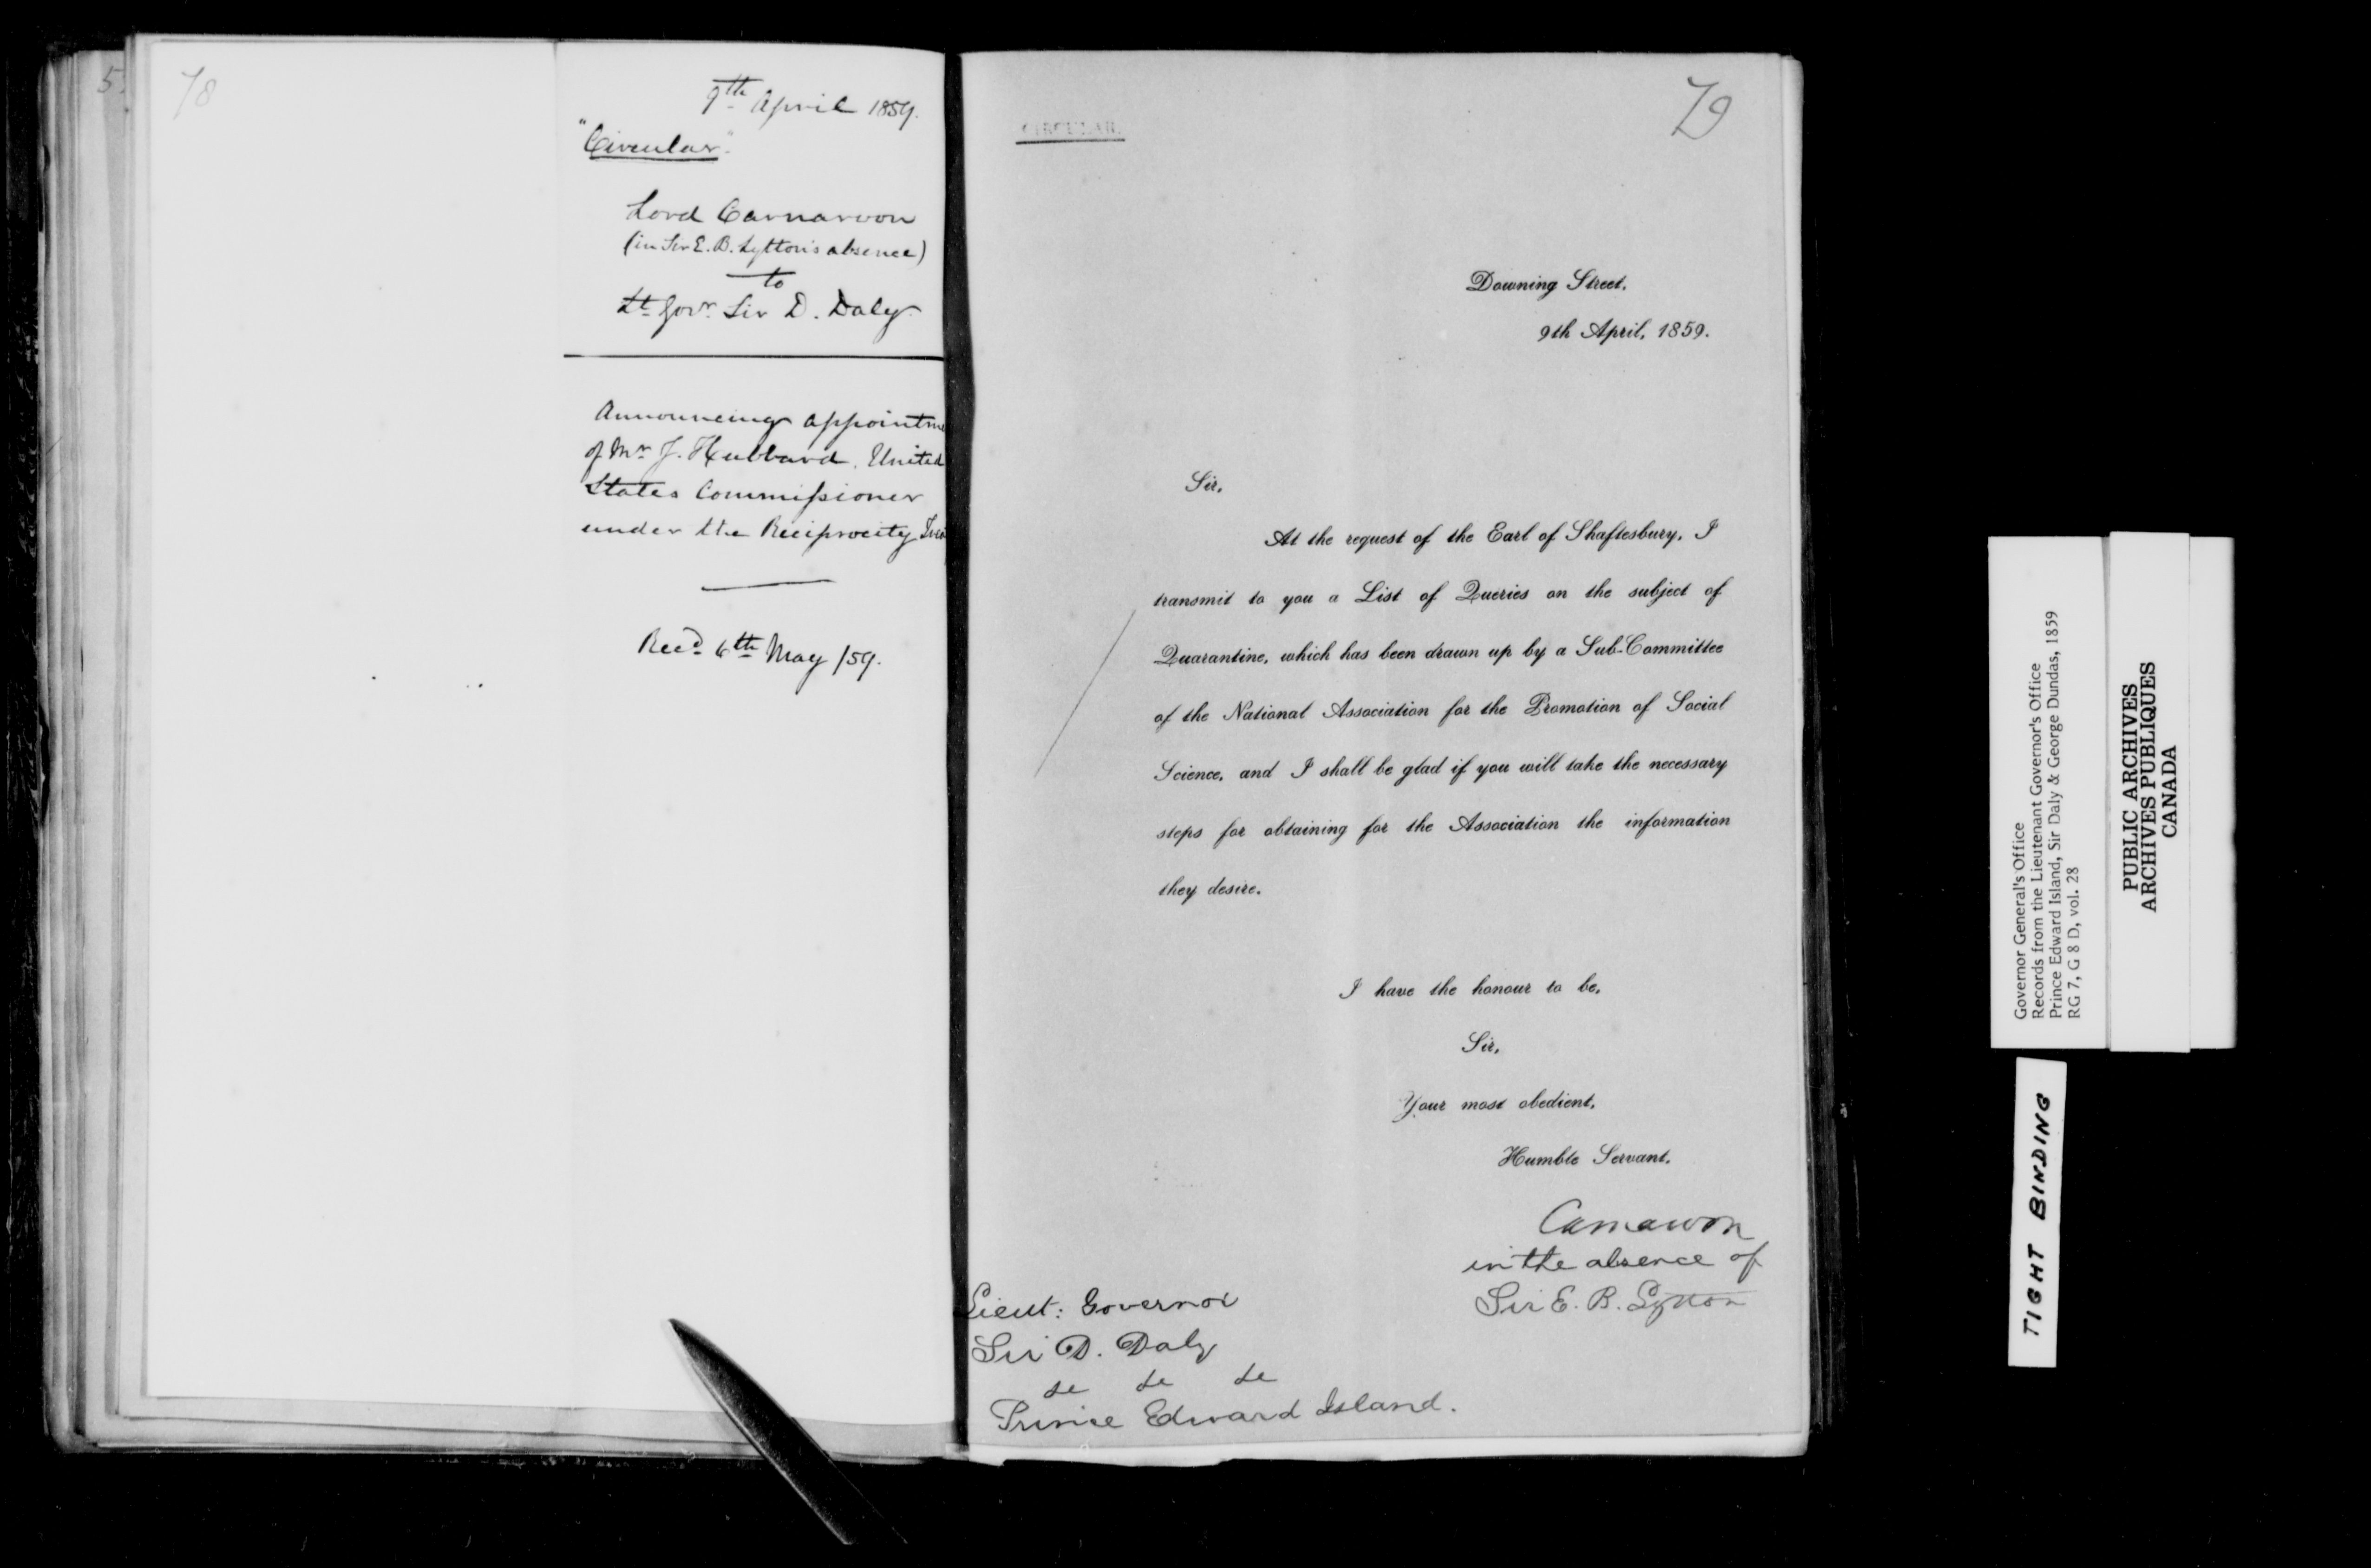 78
9th April 1859.
"Circular".
Lord Carnarvon
(in Sir E. B. Lytton's absence)
to
Lt Govr. Sir D. Daly
Announcing appointme
of Mr J. Hubbard, United
States Commissioner
under the Reciprocity Trea
Recd 6th May /59.
CIRCULAR.
79
Downing Street,
9th April, 1859.
Sir,
At the request of the Earl of Shaftesbury, I
transmit to you a List of Queries on the subject of
Quarantine, which has been drawn up by a Sub-Committee
of the National Association for the Promotion of Social
Science, and I shall be glad if you will take the necessary
steps for obtaining for the Association the information
they desire.
I have the honour to be,
Sir,
Your most obedient,
Humble Servant,
Carnarvon
in the absence of
Sir E. B. Lytton
Lieut: Governor
Sir D. Daly
&c &c &c
Prince Edward Island.
Governor General's Office
Records from the Lieutenant Governor's Office
Prince Edward Island, Sir Daly & George Dundas, 1859
RG 7, G 8 D, vol. 28
PUBLIC ARCHIVES
ARCHIVES PUBLIQUES
CANADA
TIGHT BINDING